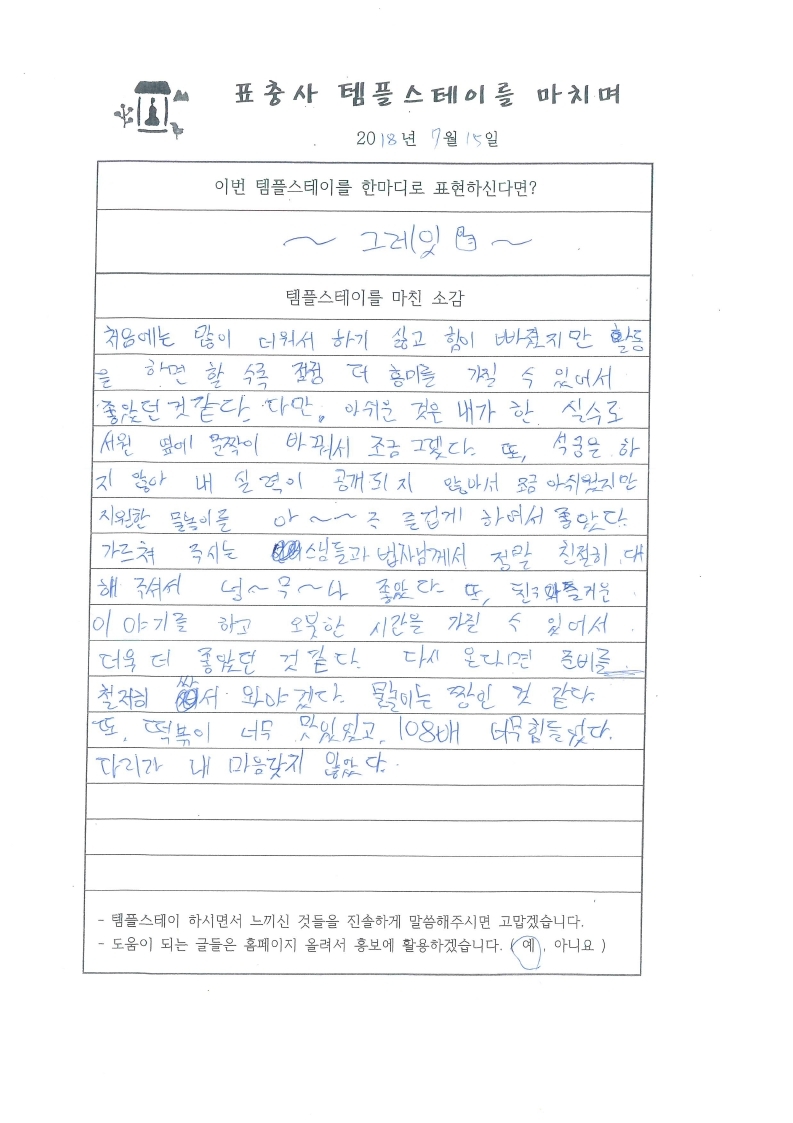 표충사 템플스테이를 마치며
2018년 7월 15일
이번 템플스테이를 한마디로 표현하신다면?
~ 그레잇 ~
템플스테이를 마친 소감
처음에는 많이 더워서 하기 싫고 힘이 빠졌지만 활동
을 하면 할 수록 점점 더 흥미를 가질 수 있어서
좋았던 것 같다. 다만, 아쉬운 것은 내가 한 실수로
서원 옆에 문짝이 바뀌서 조금 그렇다. 또, 석궁은 하
지 않아 내 실력이 공개되지 않아서 조금 아쉬웠지만
지원한 물놀이를 아~~주 즐겁게 하여서 좋았다.
가르쳐 주시는 스님들과 법사님께서 정말 친절히 대
해 주셔서 넘~무~나 좋았다. 또, 친구와 즐거운
이야기를 하고 오붓한 시간을 가질 수 있어서
더욱 더 좋았던 것 같다. 다시 온다면 준비를
철저히 싸서 와야겠다. 물놀이는 짱인 것 같다.
또, 떡볶이 너무 맛있있고, 108배 너무 힘들었다.
다리가 내 마음닿지 않았다.
- 템플스테이 하시면서 느끼신 것들을 진솔하게 말씀해주시면 고맙겠습니다.
- 도움이 되는 글들은 홈페이지 올려서 홍보에 활용하겠습니다. ( 예 , 아니요 )